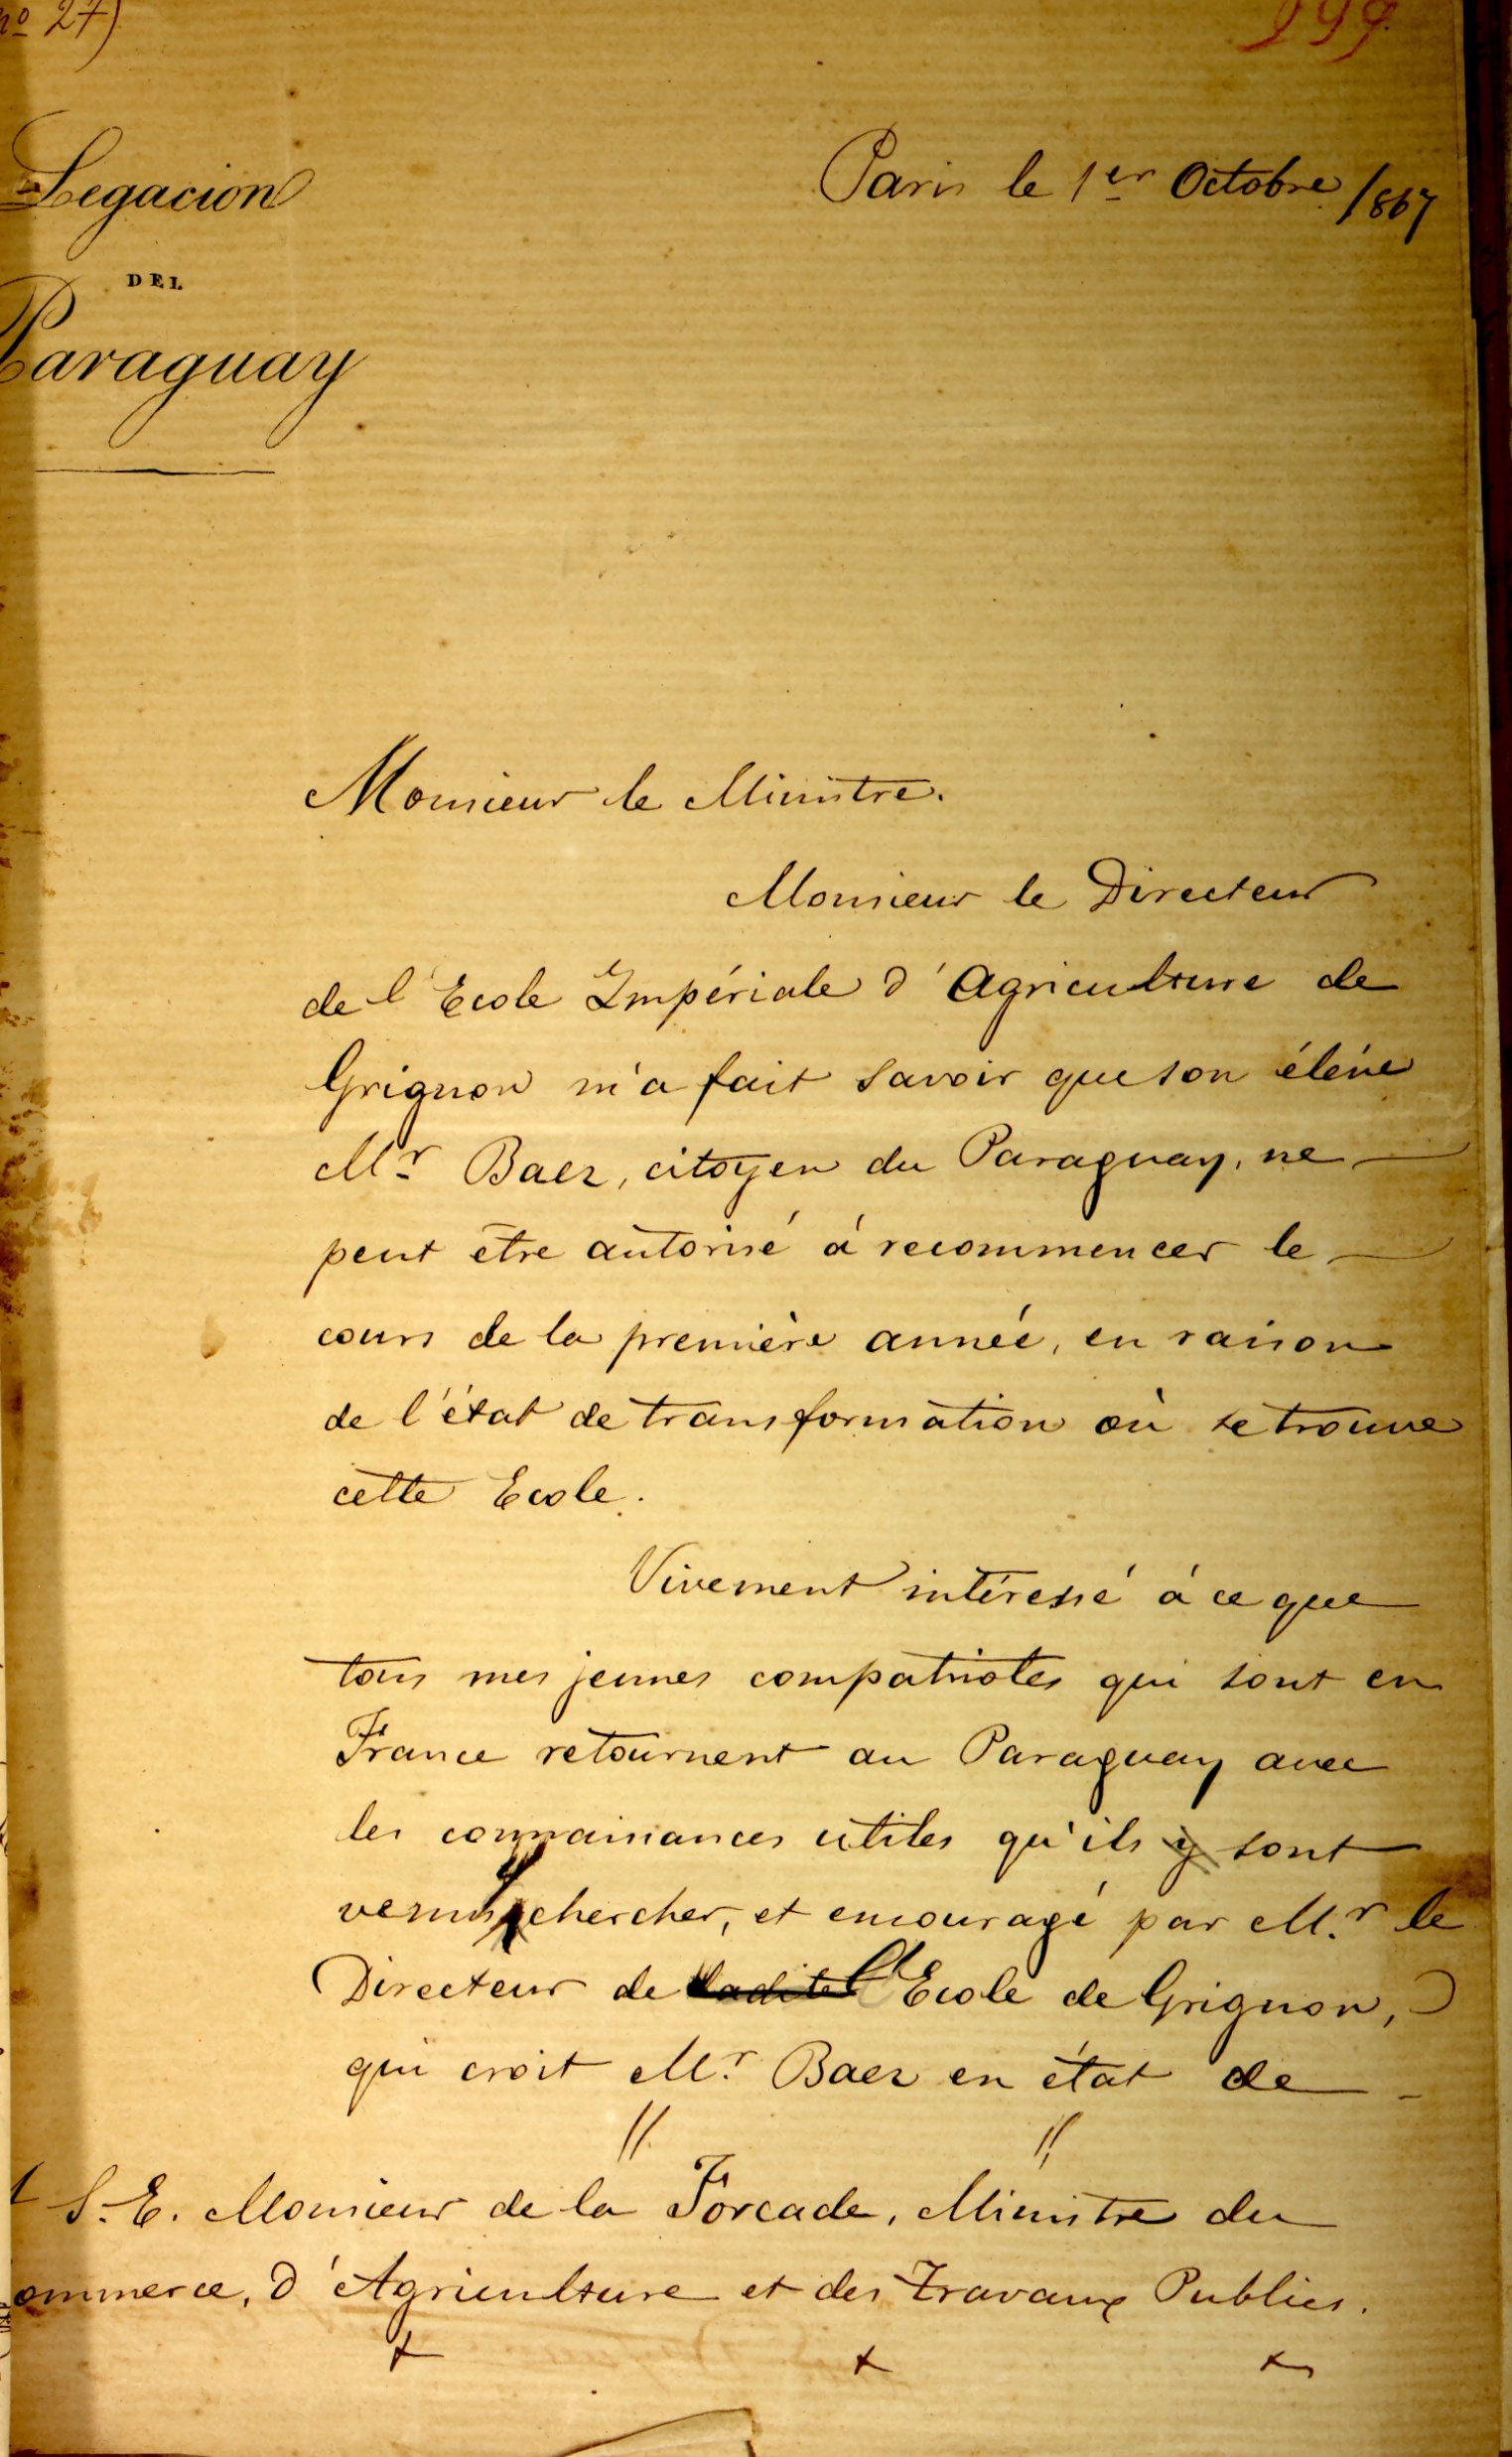 nº 27)
199
Legacion
DEL
Paraguay
Paris le 1er Octobre /867
Monsieur le Ministre.
Monsieur le Directeur
de l'Ecole Impériale d'Agriculture de
Grignon m'a fait savoir que son éléve
Mr Baez, citoyen du Paraguay, ne
peut etre autorisé á recommencer le
cours de la première année, en raison
de l'état de transformation où se trouve
cette Ecole.
Vivement intéressé á ce que
tous mes jeunes compatriotes qui sont en
France retournent au Paraguay avec
les connaissances utiles qu'ils y sont
venus chercher, et encouragé par Mr le
Directeur de ladite l'Ecole de Grignon,
qui croit Mr Baez en état de
// //
S. E. Monsieur de la Forcade, Ministre du
ommerce, d'Agriculture et des Travaux Publics.